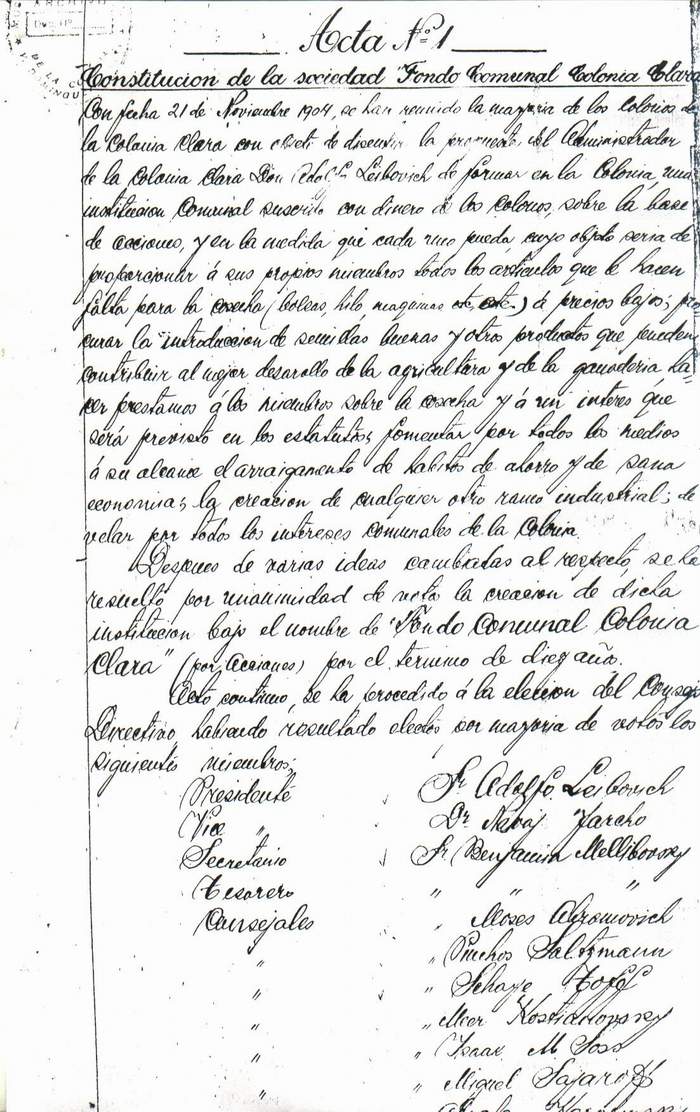 ARCHIVO
DE LA
Acta Nº 1
Constitucion de la sociedad Fondo Comunal Colonia Clara
Con fecha 21 de Noviembre 1904, se han reunido la mayoria de los colonos de
la colonia Clara con objeto de discutir la propuesta del Administrador
de la colonia Clara Don Adolfo Leibovich de formar en la Colonia, una
institucion Comunal suscrito con dinero de los colonos, sobre la base
de acciones, y en la medida que cada uno pueda cuyo objeto seria de
proporcionar á sus propios miembros todos los articulos que le hacen
falta para la cosecha (bolsas, hilo, maquinas etc, etc.) á precios bajos; pro
curar la introduccion de semillas buenas y otros productos que pueden
contribuir al mejor desarollo de la agricultura y de la ganaderia ha-
cer prestamos á los miembros sobre la cosecha y á un interes que
será previsto en los estatutos; fomentar por todos los medios
á su alcance el arraigamento de habitos de ahorro y de sana
economia; la creacion de cualquier otro ramo industrial; de
velar por todos los intereses comunales de la Colonia.
Despues de varias ideas cambiatas al respecto, se ha
resuelto por unanimidad de voto la creacion de dicha
institucion bajo el nombre de "Fondo Comunal Colonia
Clara" (por Acciones) por el termino de diez años.
Acto continuo, se ha procedido á la eleccion del Consejo
Directivo habiendo resultado electos por mayoria de votos los
siguientes miembros;
Presidente Sr Adolfo Leibovich
Vice " Dr Yarcho
Secretario Sr Benjamin Mellibovsky
Tesorero " " "
Consejales " Moses Abramovich
" Pinchos Saltzmann
" " Schaye Toff
" " Meer Kostianovsky
" " Isaac M Soss
" " Miguel Sajaroff
"